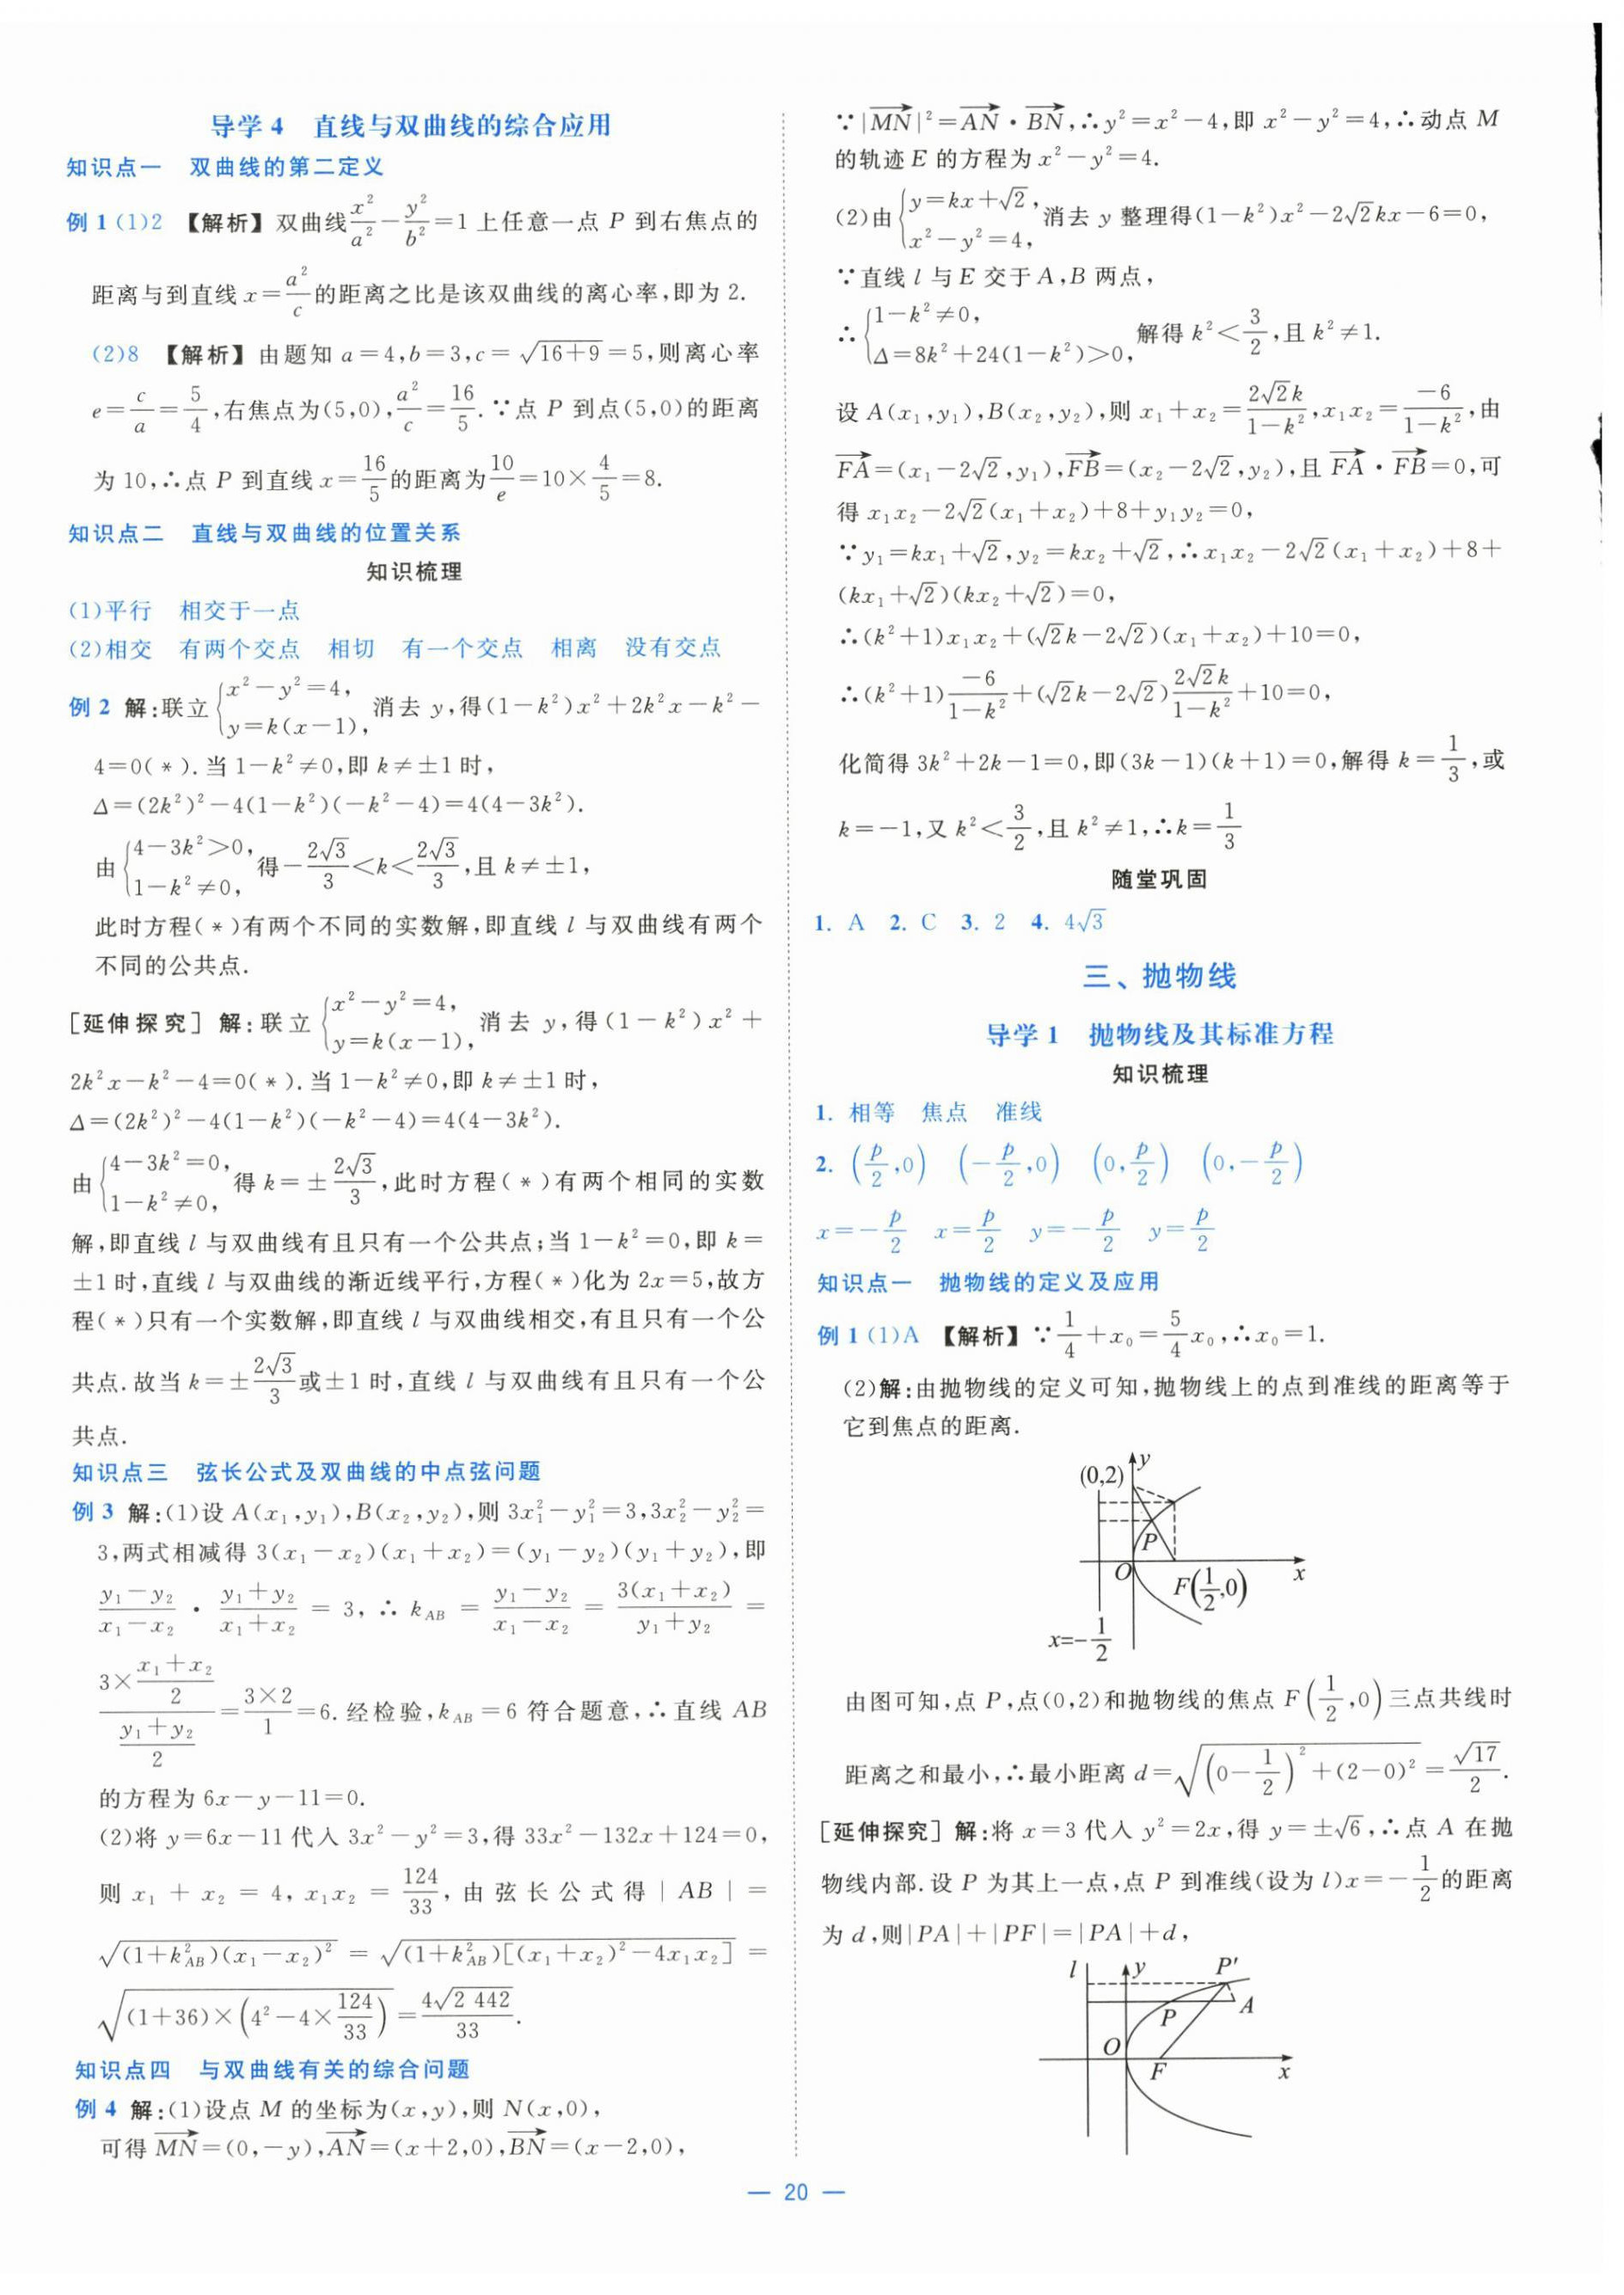 导学 4　直线与双曲线的综合应用
知识点一　双曲线的第二定义
例 1 (1)2 【解析】双曲线x²/a²－y²/b²＝1 上任意一点 P 到右焦点的
距离与到直线 x＝a²/c的距离之比是该双曲线的离心率,即为 2.
(2)8 【解析】由题知 a＝4,b＝3,c＝√(16＋9)＝5,则离心率
e＝c/a＝5/4,右焦点为(5,0),a²/c＝16/5.∵点 P 到点(5,0)的距离
为 10,∴点 P 到直线 x＝16/5的距离为10/e＝10×4/5＝8.
知识点二　直线与双曲线的位置关系
知识梳理
(1)平行　相交于一点
(2)相交　有两个交点　相切　有一个交点　相离　没有交点
例 2 解:联立{x²－y²＝4, y＝k(x－1), 消去 y,得(1－k²)x²＋2k²x－k²－
4＝0(*).当 1－k²≠0,即 k≠±1 时,
Δ＝(2k²)²－4(1－k²)(－k²－4)＝4(4－3k²).
由{4－3k²＞0, 1－k²≠0, 得－2√3/3＜k＜2√3/3,且 k≠±1,
此时方程(*)有两个不同的实数解,即直线 l 与双曲线有两个
不同的公共点.
[延伸探究] 解:联立{x²－y²＝4, y＝k(x－1), 消去 y,得(1－k²)x²＋
2k²x－k²－4＝0(*).当 1－k²≠0,即 k≠±1 时,
Δ＝(2k²)²－4(1－k²)(－k²－4)＝4(4－3k²).
由{4－3k²＝0, 1－k²≠0, 得 k＝±2√3/3,此时方程(*)有两个相同的实数
解,即直线 l 与双曲线有且只有一个公共点;当 1－k²＝0,即 k＝
±1 时,直线 l 与双曲线的渐近线平行,方程(*)化为 2x＝5,故方
程(*)只有一个实数解,即直线 l 与双曲线相交,有且只有一个公
共点.故当 k＝±2√3/3或±1 时,直线 l 与双曲线有且只有一个公
共点.
知识点三　弦长公式及双曲线的中点弦问题
例 3 解:(1)设 A(x₁,y₁),B(x₂,y₂),则 3x₁²－y₁²＝3,3x₂²－y₂²＝
3,两式相减得 3(x₁－x₂)(x₁＋x₂)＝(y₁－y₂)(y₁＋y₂),即
(y₁－y₂)/(x₁－x₂)·(y₁＋y₂)/(x₁＋x₂)＝3,∴k_AB＝(y₁－y₂)/(x₁－x₂)＝3(x₁＋x₂)/(y₁＋y₂)＝
(3×(x₁＋x₂)/2)/((y₁＋y₂)/2)＝(3×2)/1＝6.经检验,k_AB＝6 符合题意,∴直线 AB
的方程为 6x－y－11＝0.
(2)将 y＝6x－11 代入 3x²－y²＝3,得 33x²－132x＋124＝0,
则 x₁＋x₂＝4,x₁x₂＝124/33,由弦长公式得|AB|＝
√((1＋k_AB²)(x₁－x₂)²)＝√((1＋k_AB²)[(x₁＋x₂)²－4x₁x₂])＝
√((1＋36)×(4²－4×124/33))＝4√2 442/33.
知识点四　与双曲线有关的综合问题
例 4 解:(1)设点 M 的坐标为(x,y),则 N(x,0),
可得 MN→＝(0,－y),AN→＝(x＋2,0),BN→＝(x－2,0),
∵|MN→|²＝AN→·BN→,∴y²＝x²－4,即 x²－y²＝4,∴动点 M
的轨迹 E 的方程为 x²－y²＝4.
(2)由{y＝kx＋√2, x²－y²＝4, 消去 y 整理得(1－k²)x²－2√2kx－6＝0,
∵直线 l 与 E 交于 A,B 两点,
∴{1－k²≠0, Δ＝8k²＋24(1－k²)＞0, 解得 k²＜3/2,且 k²≠1.
设 A(x₁,y₁),B(x₂,y₂),则 x₁＋x₂＝2√2k/(1－k²),x₁x₂＝－6/(1－k²),由
FA→＝(x₁－2√2,y₁),FB→＝(x₂－2√2,y₂),且 FA→·FB→＝0,可
得 x₁x₂－2√2(x₁＋x₂)＋8＋y₁y₂＝0,
∵y₁＝kx₁＋√2,y₂＝kx₂＋√2,∴x₁x₂－2√2(x₁＋x₂)＋8＋
(kx₁＋√2)(kx₂＋√2)＝0,
∴(k²＋1)x₁x₂＋(√2k－2√2)(x₁＋x₂)＋10＝0,
∴(k²＋1)－6/(1－k²)＋(√2k－2√2)2√2k/(1－k²)＋10＝0,
化简得 3k²＋2k－1＝0,即(3k－1)(k＋1)＝0,解得 k＝1/3,或
k＝－1,又 k²＜3/2,且 k²≠1,∴k＝1/3
随堂巩固
1. A　2. C　3. 2　4. 4√3
三、抛物线
导学 1　抛物线及其标准方程
知识梳理
1. 相等　焦点　准线
2. (p/2,0)　(－p/2,0)　(0,p/2)　(0,－p/2)
x＝－p/2　x＝p/2　y＝－p/2　y＝p/2
知识点一　抛物线的定义及应用
例 1 (1)A 【解析】∵1/4＋x₀＝5/4x₀,∴x₀＝1.
(2)解:由抛物线的定义可知,抛物线上的点到准线的距离等于
它到焦点的距离.
(0,2)
y
P
O
F(1/2,0)
x
x=-1/2
由图可知,点 P,点(0,2)和抛物线的焦点 F(1/2,0)三点共线时
距离之和最小,∴最小距离 d＝√((0－1/2)²＋(2－0)²)＝√17/2.
[延伸探究] 解:将 x＝3 代入 y²＝2x,得 y＝±√6,∴点 A 在抛
物线内部.设 P 为其上一点,点 P 到准线(设为 l)x＝－1/2的距离
为 d,则|PA|＋|PF|＝|PA|＋d,
l
y
P'
P
A
O
F
x
— 20 —